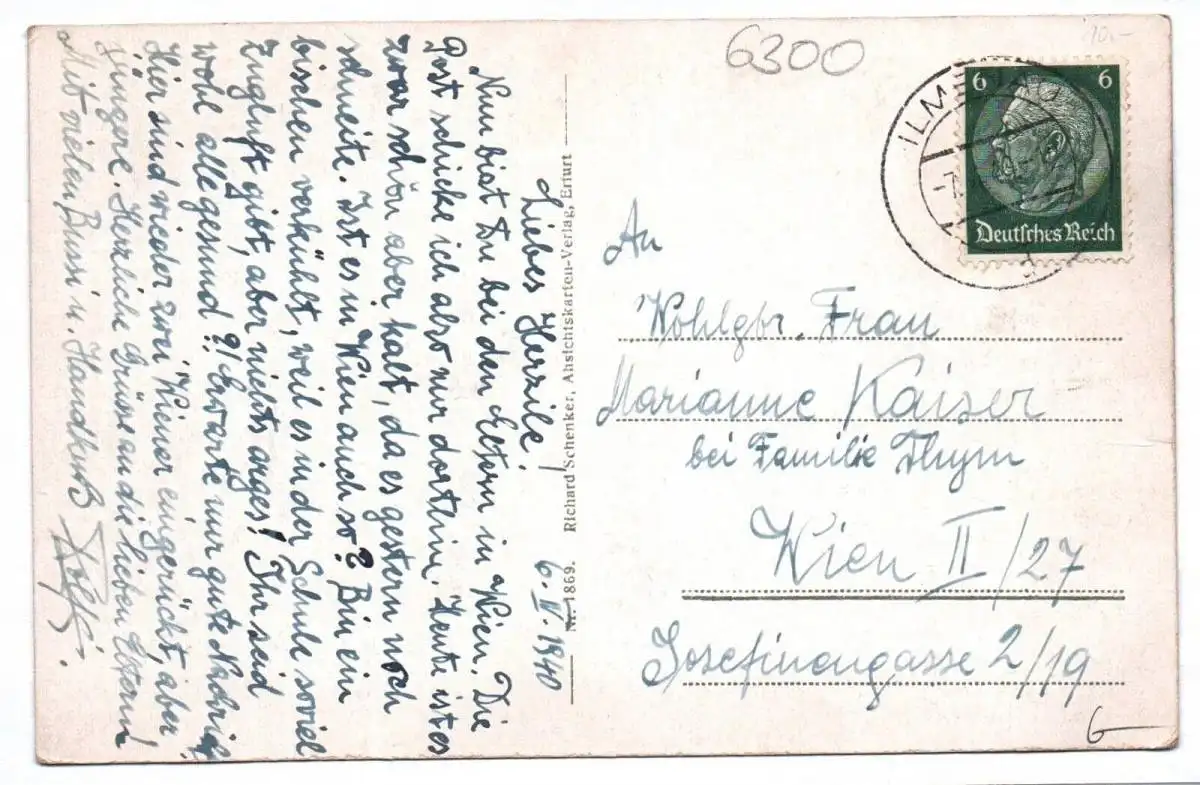 Liebes Herzile! 6. IV. 1940
Nun bist Du bei den Eltern in Wien. Die
Post schicke ich also nur dorthin. Heute ist es
zwar schön aber kalt, da es gestern noch
schneite. Ist es in Wien auch so? Bin ein
bischen verkühlt, weil es in der Schule soviel
Zugluft gibt, aber nichts arges! Ihr seid
wohl alle gesund?! Erwarte nur gute Nachricht
Hier sind wieder zwei Wiener eingerückt, aber
jüngere. Herzliche Grüsse an die lieben Eltern!
Mit vielen Bussi u. Handkuß
Nr. 1869. Richard Schenker, Ansichtskarten-Verlag, Erfurt
6300
10.-
ILMENAU
6 6
Deutsches Reich
An
Wohlgb. Frau
Marianne Kaiser
bei Familie Thym
Wien II/27
Josefinengasse 2/19
6